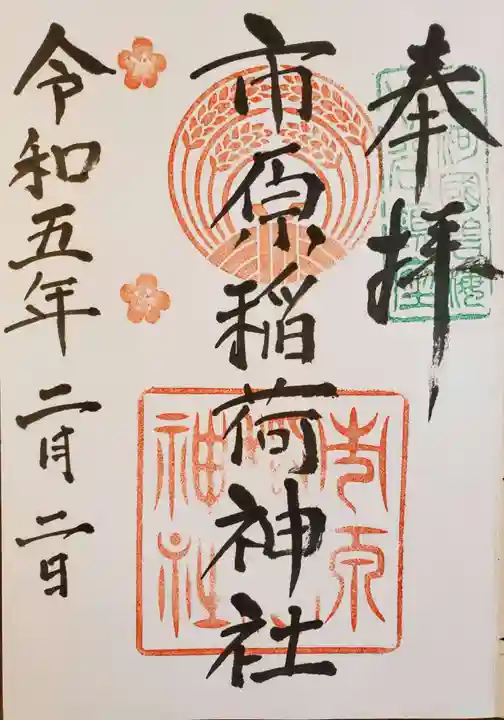 奉拝
市原稲荷神社
令和五年二月二日